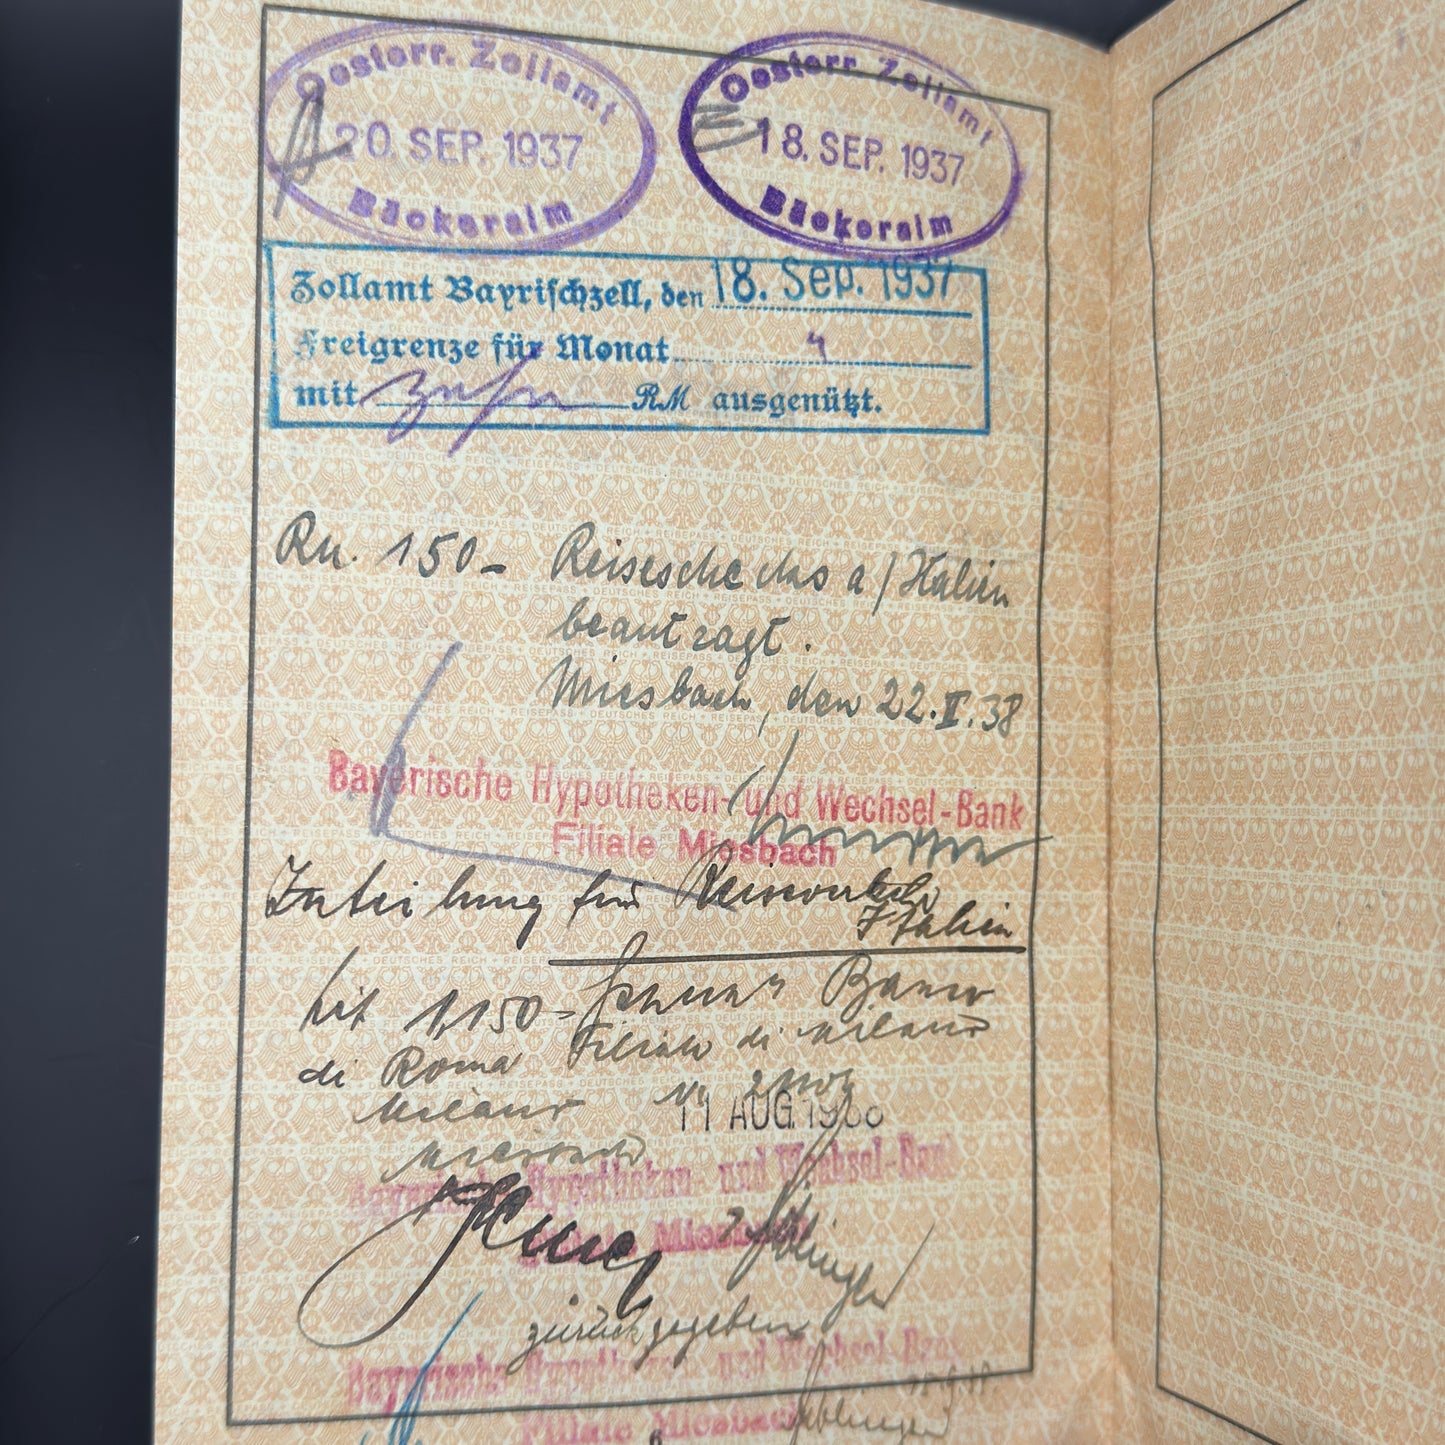 Oesterr. Zollamt
20. SEP. 1937
Bäckeralm
Oesterr. Zollamt
18. SEP. 1937
Bäckeralm
Zollamt Bayrischzell, den 18. Sep. 1937
Freigrenze für Monat 9
mit zehn RM ausgenützt.
Rm. 150.- Reiseschecks a/Italien
beantragt.
Miesbach, den 22.II.38
Bayerische Hypotheken- und Wechsel-Bank
Filiale Miesbach
Zuteilung für
Italien
Lit 1,150.- Banco
di Roma Filiale di Milano
Milano
11 AUG. 1938
Bayerische Hypotheken- und Wechsel-Bank
Filiale Miesbach
zurückgegeben
Bayerische Hypotheken- und Wechsel-Bank
Filiale Miesbach
6